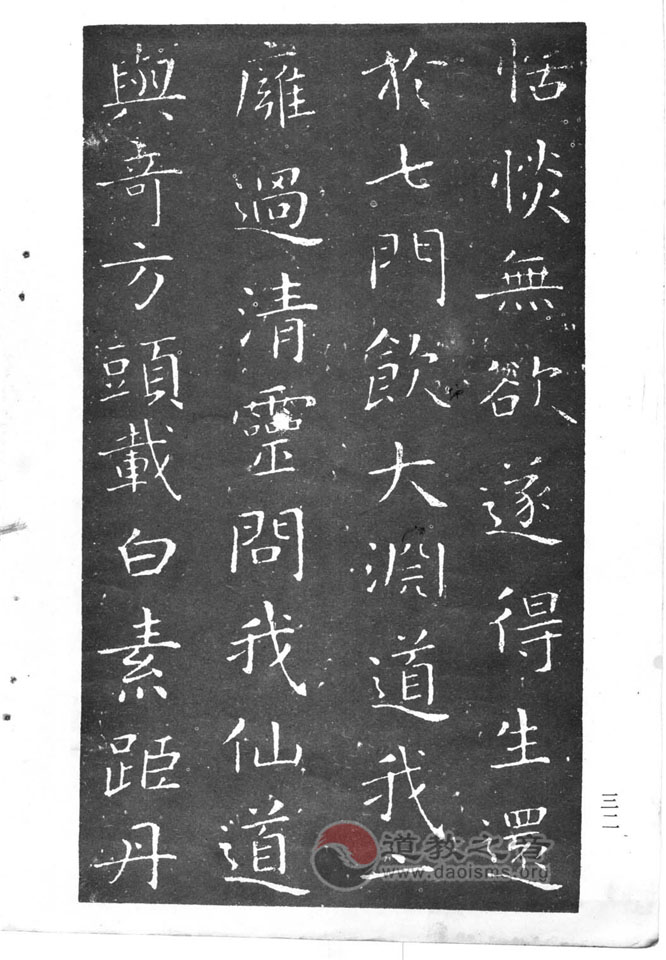 恬惔無欲遂得生還
於七門飲大淵道我
廱過清靈問我仙道
與奇方頭載白素距丹
三二
道教之音
www.daoisms.org